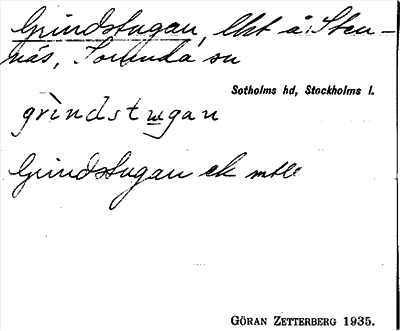 Grindstugan, lht å Sten-
näs, Sorunda sn
Sotholms hd, Stockholms l.
grìndstu̲gan
Grindstugan ek mtl
GÖRAN ZETTERBERG 1935.